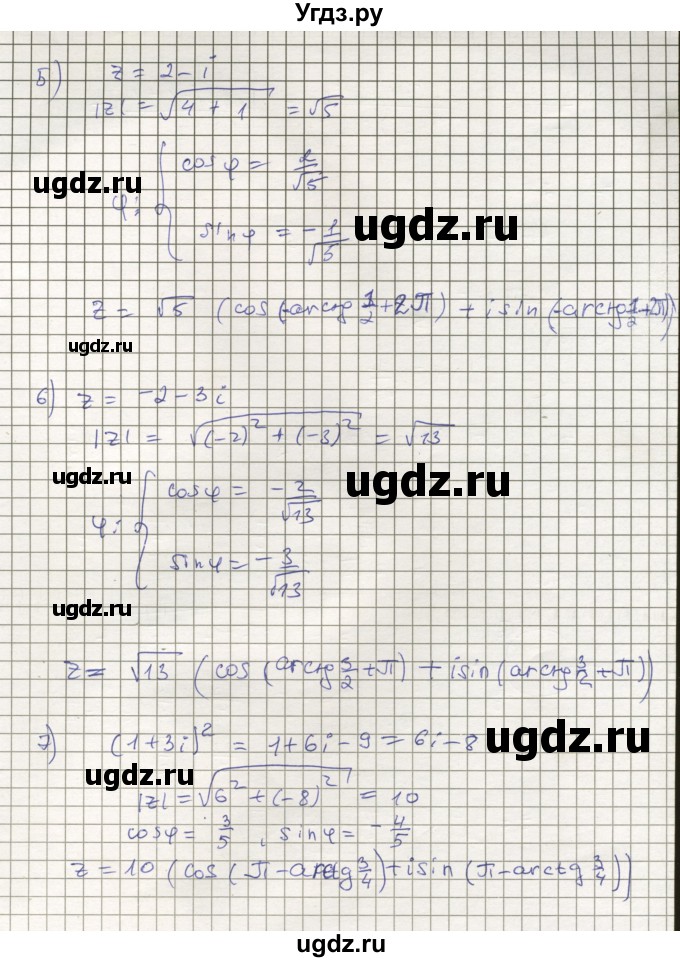 Угдз.ру
5) z = 2 - i
|z| = √(4 + 1) = √5
ugdz.ru
φ: { cos φ = 2/√5
sin φ = - 1/√5
ugdz.ru
z = √5 (cos(-arctg 1/2 + 2π) + i sin(-arctg 1/2 + 2π))
ugdz.ru
6) z = -2 - 3i
|z| = √((-2)² + (-3)²) = √13
ugdz.ru
ugdz.ru
φ: { cos φ = - 2/√13
sin φ = - 3/√13
ugdz.ru
z = √13 (cos(arctg 3/2 + π) + i sin(arctg 3/2 + π))
7) (1+3i)² = 1 + 6i - 9 = 6i - 8
ugdz.ru
ugdz.ru
|z| = √(6² + (-8)²) = 10
cos φ = 3/5, sin φ = - 4/5
z = 10 (cos(π - arctg 3/4) + i sin(π - arctg 3/4))
ugdz.ru